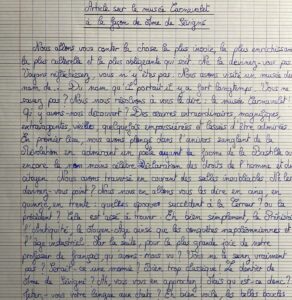 Article sur le musée Carnavalet
à la façon de Mme de Sévigné
Nous allons vous conter la chose la plus inouïe, la plus enrichissante
la plus culturelle et la plus intrigante qui soit. Ne la devinez-vous pas
Voyons réfléchissez, vous n'y êtes pas. Nous avons visité un musée du
nom de... Du nom qu'il portait il y a fort longtemps. Vous ne
savez pas ? Nous nous résolvons à vous le dire : le musée Carnavalet !
Qu'y avons-nous découvert ? Des œuvres extraordinaires, magnifiques,
extravagantes, quelquefois empoussiérées et laissées d'être admirées.
En premier lieu, nous avons plongé dans l'univers sanglant de la
Révolution en admirant en passant la Bastille ou
encore la non moins célèbre Déclaration des droits de l'homme et du
citoyen. Nous avons traversé en courant des salles inoubliables. Ne les
devinez-vous point ? Nous nous en allons vous les dire en cinq, en
quinze, en trente : quelles époques succèdent à la Terreur ? ou la
précèdent ? Cela est aisé à trouver. Eh bien simplement, la Préhistoire
l'Antiquité, le Moyen-Âge ainsi que les conquêtes napoléoniennes et
l'âge industriel. Par la suite, pour la plus grande joie de notre
professeur de français qu'avons-nous vu ? Vous ne le savez vraiment
pas ? Serait-ce une momie ? Bien trop classique ! Le dentier de
Mme de Sévigné ? Ah, vous vous en approchez ! Mais qu'est-ce donc ?
Jetez-vous votre langue aux chats ? Eh bien de telles beautés